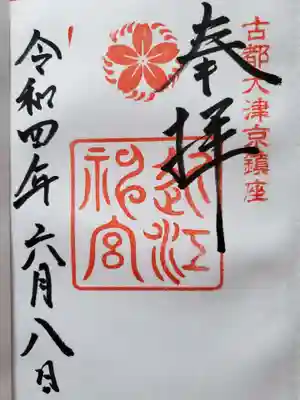 古都大津京鎮座
奉拝
近江
神宮
令和四年六月八日